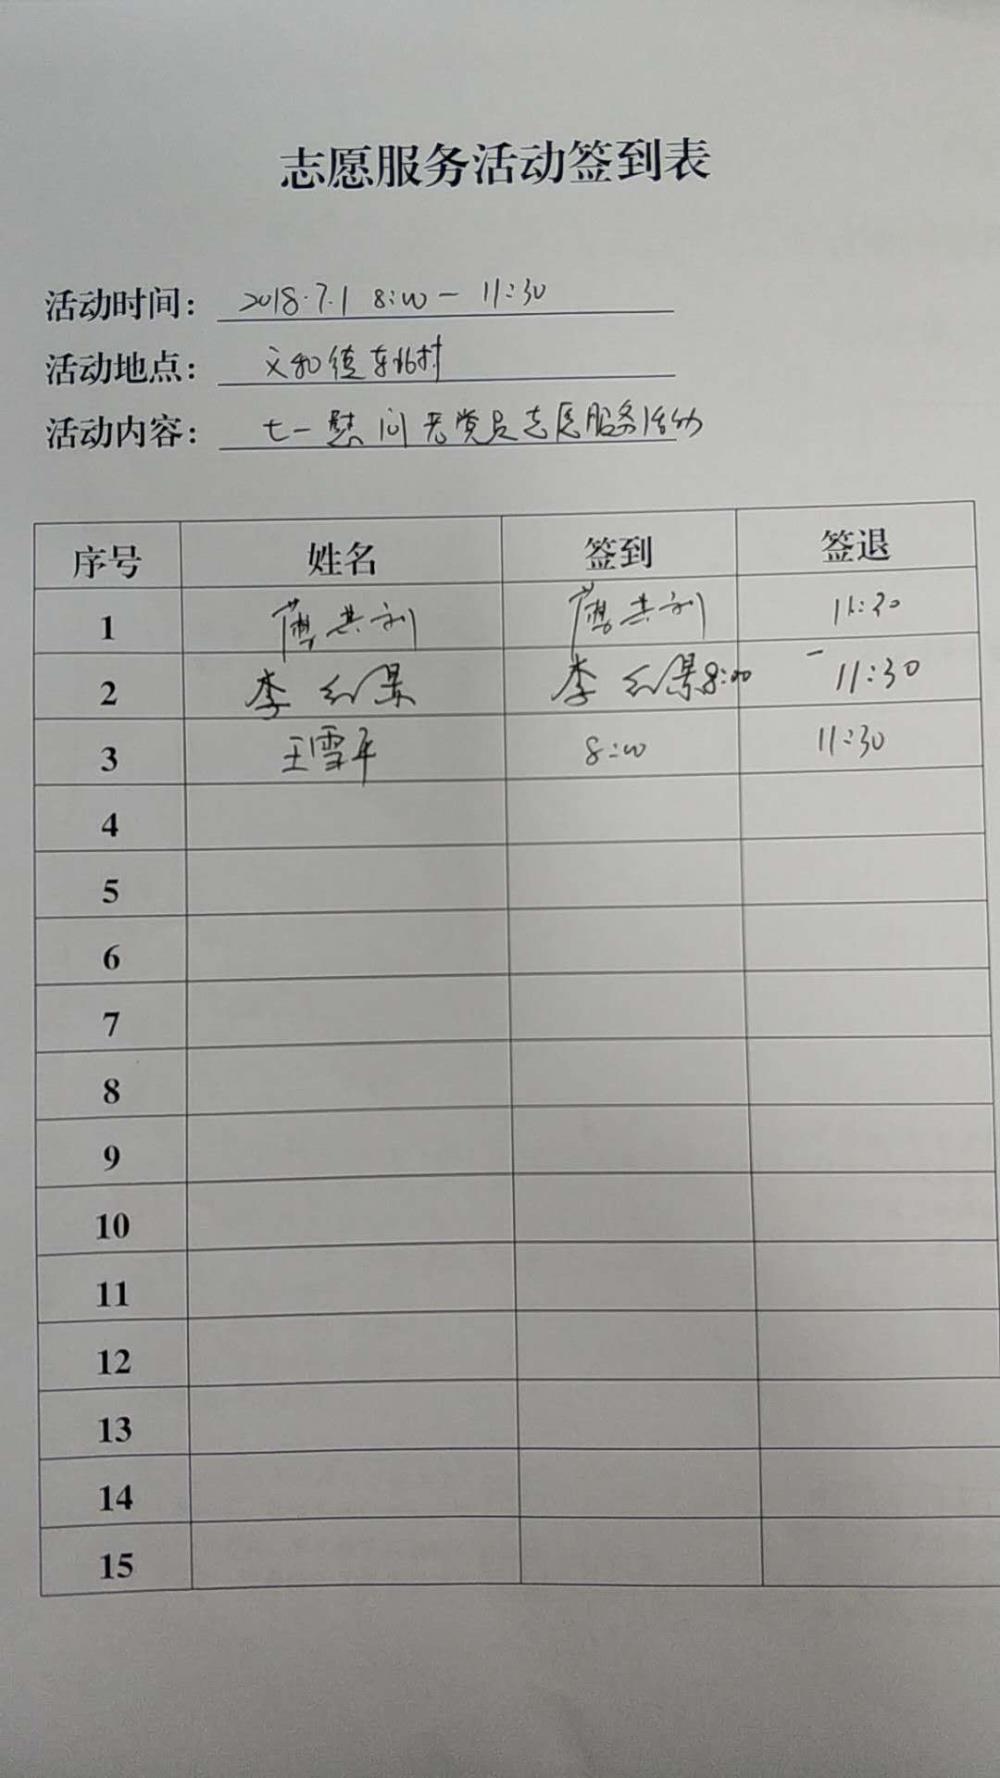 志愿服务活动签到表
活动时间: 2018.7.1 8:00 — 11:30
活动地点: 文和德东北村
活动内容: 七一慰问老党员志愿服务活动
序号 姓名 签到 签退
1 共利 共利 11:30
2 李红景 李红景8:00 - 11:30
3 王雪平 8:00 11:30
4
5
6
7
8
9
10
11
12
13
14
15